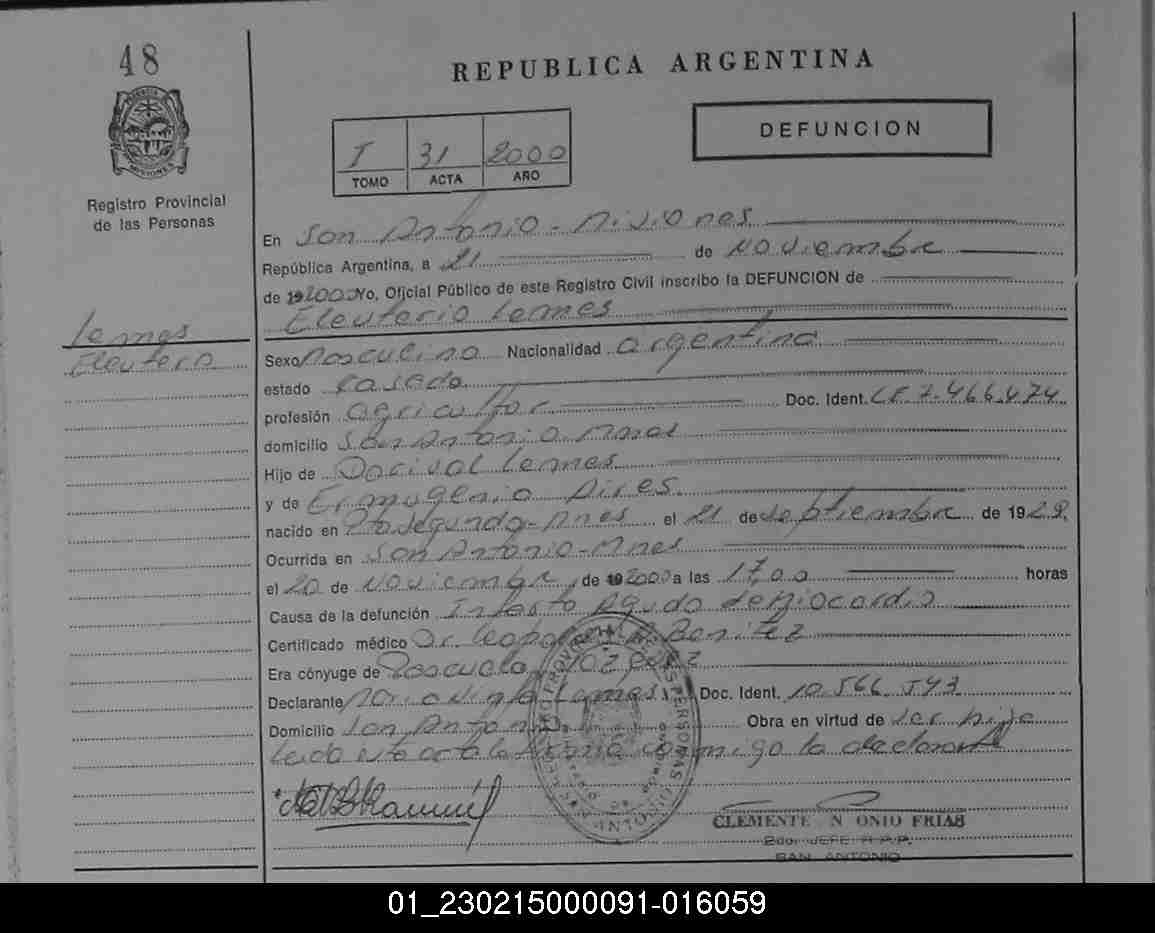 48
REPUBLICA ARGENTINA
DEFUNCION
I 31 2000
TOMO ACTA AÑO
Registro Provincial
de las Personas
En San Antonio - Misiones
República Argentina, a 21 de Noviembre
de 192000 Yo, Oficial Público de este Registro Civil inscribo la DEFUNCION de
Eleuterio Lemes
Lemes
Eleuterio
Sexo Masculino Nacionalidad Argentina
estado Casado
profesión Agricultor Doc. Ident. LE 7.466.474
domicilio San Antonio Mnes
Hijo de Dorival Lemes
y de Ermogenia Aires
nacido en Pto Segundo - Mnes el 21 de Septiembre de 1928
Ocurrida en San Antonio - Mnes
el 20 de Noviembre de 192000 a las 17,00 horas
Causa de la defunción Infarto Agudo de Miocardio
Certificado médico Dr. Benitez
Era cónyuge de Pascuala
Declarante Lemes Doc. Ident. 10.566.543
Domicilio San Antonio Obra en virtud de ser hija
Leida esta acta la firma conmigo la declarante
CLEMENTE N ONIO FRIAS
2do. JEFE R.P.P.
SAN ANTONIO
01_230215000091-016059